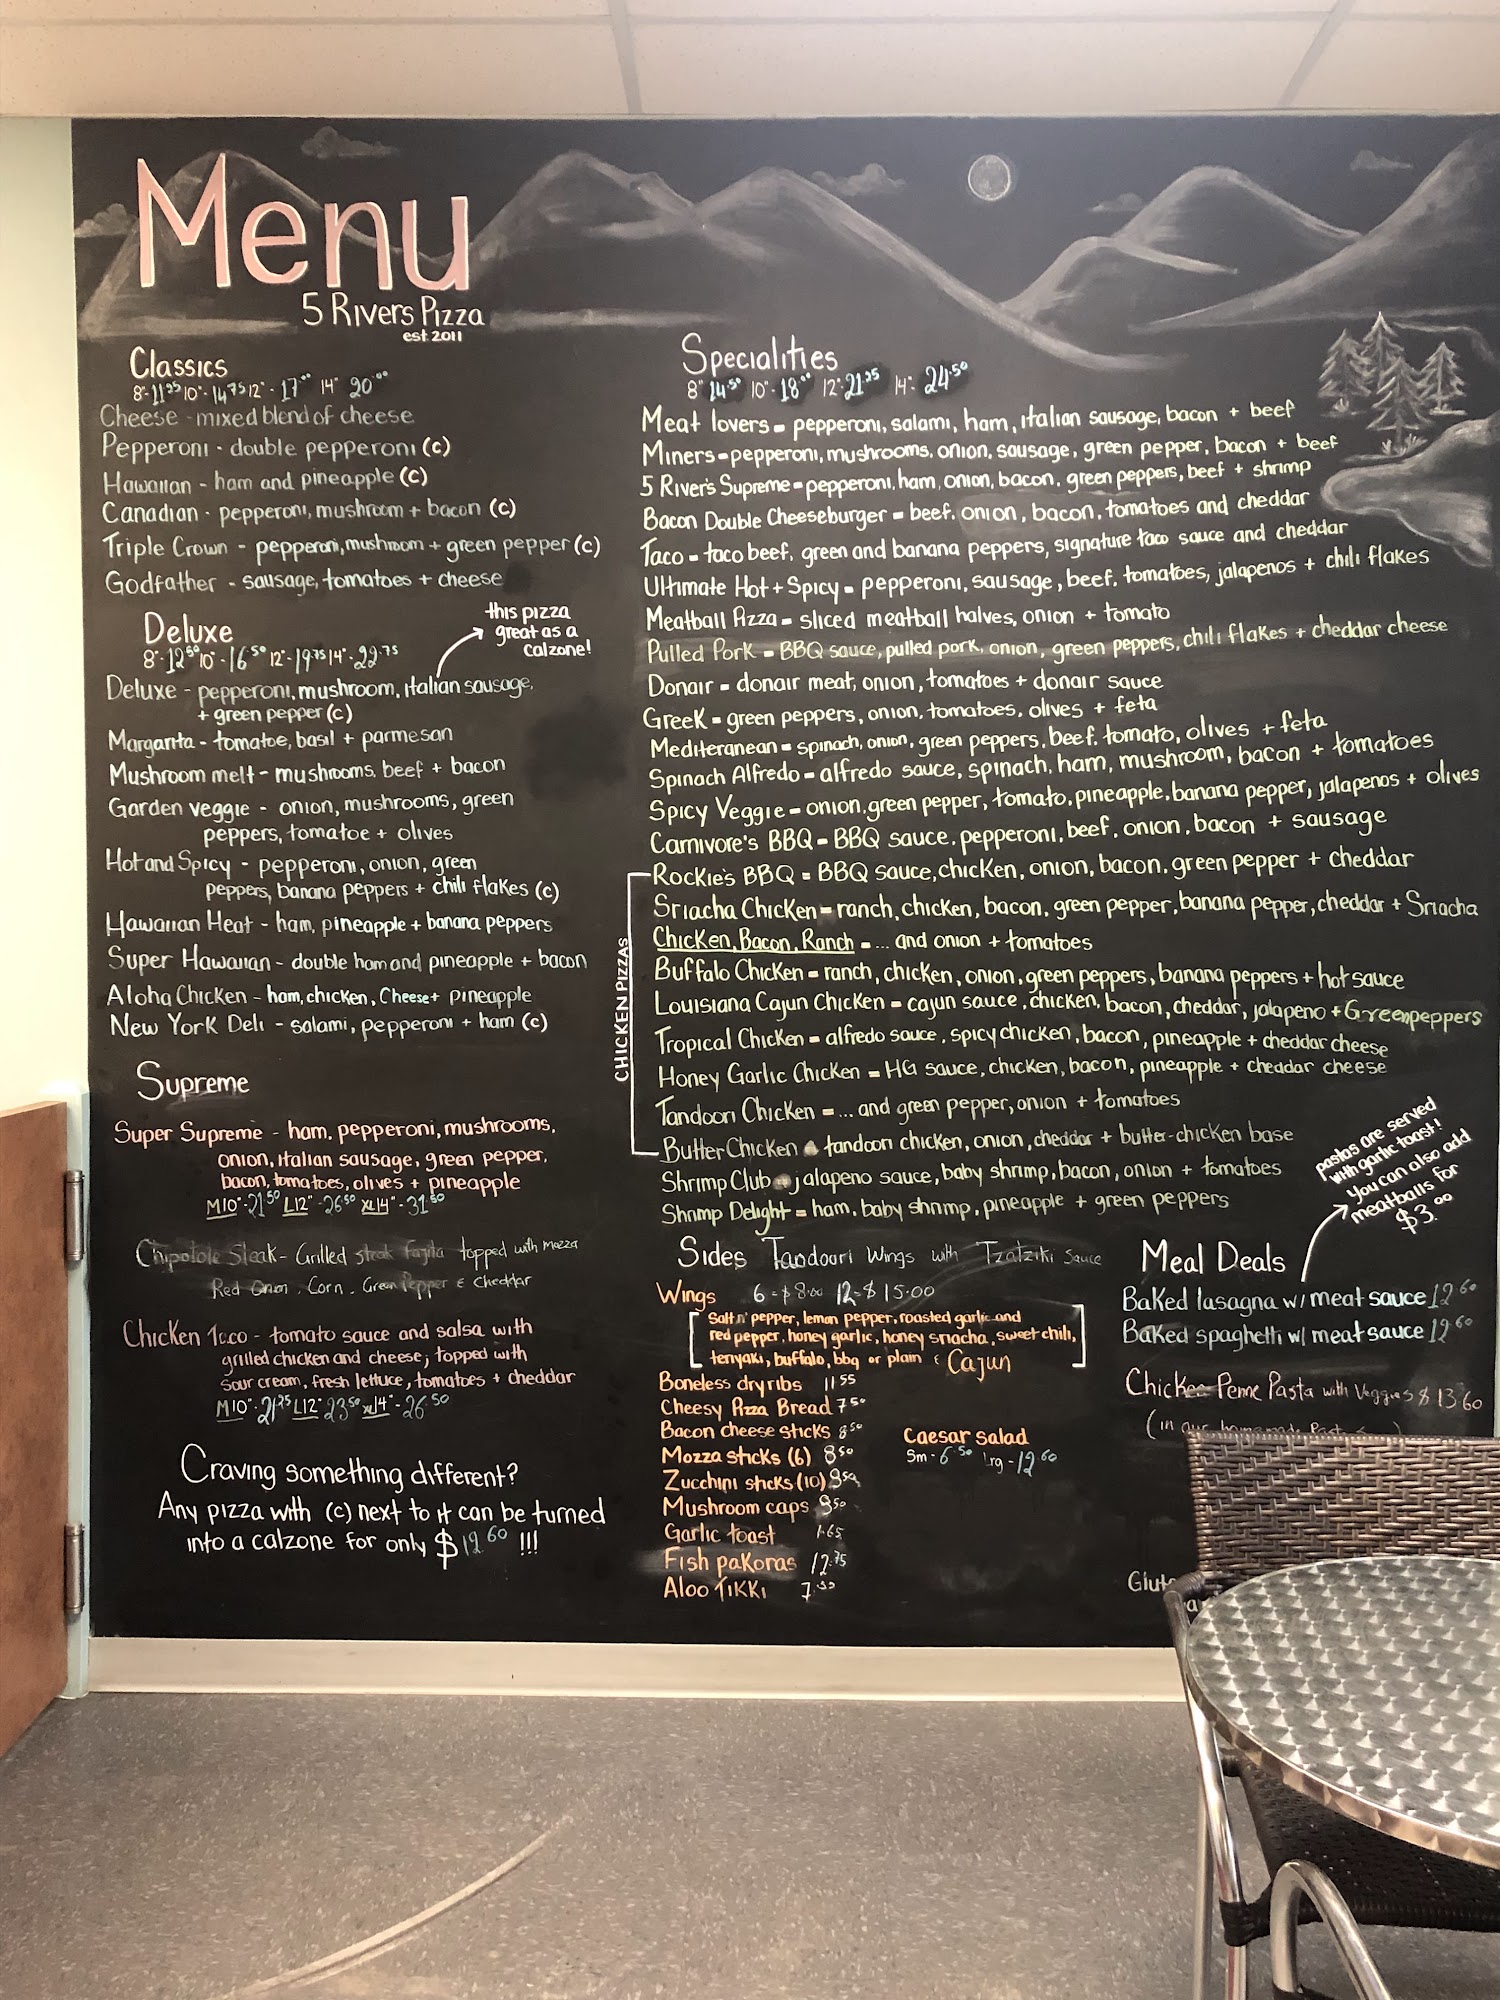 Menu
5 Rivers Pizza
est 2011
Classics
8"-11.25 10"-14.75 12"-17.00 14" 20.00
Cheese - mixed blend of cheese
Pepperoni - double pepperoni (c)
Hawaiian - ham and pineapple (c)
Canadian - pepperoni, mushroom + bacon (c)
Triple Crown - pepperoni, mushroom + green pepper (c)
Godfather - sausage, tomatoes + cheese
Deluxe
8"-12.50 10"-16.50 12"-19.75 14"-22.75
this pizza
great as a
calzone!
Deluxe - pepperoni, mushroom, italian sausage,
+ green pepper (c)
Margarita - tomatoe, basil + parmesan
Mushroom melt - mushrooms, beef + bacon
Garden veggie - onion, mushrooms, green
peppers, tomatoe + olives
Hot and Spicy - pepperoni, onion, green
peppers, banana peppers + chili flakes (c)
Hawaiian Heat - ham, pineapple + banana peppers
Super Hawaiian - double ham and pineapple + bacon
Aloha Chicken - ham, chicken, Cheese + pineapple
New York Deli - salami, pepperoni + ham (c)
Supreme
Super Supreme - ham, pepperoni, mushrooms,
onion, italian sausage, green pepper,
bacon, tomatoes, olives + pineapple
M10"-21.50 L12"-26.50 XL14"-31.50
Chipotole Steak - Grilled steak Fajita topped with mozza
Red Onion, Corn, Green Pepper & Cheddar
Chicken Taco - tomato sauce and salsa with
grilled chicken and cheese; topped with
sour cream, fresh lettuce, tomatoes + cheddar
M10"-21.25 L12" 23.50 XL14"-26.50
Craving something different?
Any pizza with (c) next to it can be turned
into a calzone for only $12.60 !!!
Specialities
8" 14.50 10"-18.00 12"-21.25 14"-24.50
Meat lovers - pepperoni, salami, ham, italian sausage, bacon + beef
Miners - pepperoni, mushrooms, onion, sausage, green pepper, bacon + beef
5 River's Supreme - pepperoni, ham, onion, bacon, green peppers, beef + shrimp
Bacon Double Cheeseburger - beef, onion, bacon, tomatoes and cheddar
Taco - taco beef, green and banana peppers, signature taco sauce and cheddar
Ultimate Hot + Spicy - pepperoni, sausage, beef, tomatoes, jalapenos + chili flakes
Meatball Pizza - sliced meatball halves, onion + tomato
Pulled Pork - BBQ sauce, pulled pork, onion, green peppers, chili flakes + cheddar cheese
Donair - donair meat, onion, tomatoes + donair sauce
Greek - green peppers, onion, tomatoes, olives + feta
Mediteranean - spinach, onion, green peppers, beef, tomato, olives + feta
Spinach Alfredo - alfredo sauce, spinach, ham, mushroom, bacon + tomatoes
Spicy Veggie - onion, green pepper, tomato, pineapple, banana pepper, jalapenos + olives
Carnivore's BBQ - BBQ sauce, pepperoni, beef, onion, bacon + sausage
CHICKEN PIZZAS
Rockie's BBQ = BBQ sauce, chicken, onion, bacon, green pepper + cheddar
Sriacha Chicken = ranch, chicken, bacon, green pepper, banana pepper, cheddar + Sriacha
Chicken, Bacon, Ranch = ... and onion + tomatoes
Buffalo Chicken = ranch, chicken, onion, green peppers, banana peppers + hot sauce
Louisiana Cajun Chicken = cajun sauce, chicken, bacon, cheddar, jalapeno + Greenpeppers
Tropical Chicken = alfredo sauce, spicy chicken, bacon, pineapple + cheddar cheese
Honey Garlic Chicken = HG sauce, chicken, bacon, pineapple + cheddar cheese
Tandoori Chicken = ... and green pepper, onion + tomatoes
Butter Chicken - tandoori chicken, onion, cheddar + butter-chicken base
Shrimp Club - jalapeno sauce, baby shrimp, bacon, onion + tomatoes
Shrimp Delight = ham, baby shrimp, pineapple + green peppers
Sides Tandoori Wings with Tzatziki Sauce
Wings 6-$8.00 12-$15.00
Salt n' pepper, lemon pepper, roasted garlic and
red pepper, honey garlic, honey sriacha, sweet chili,
teriyaki, buffalo, bbq or plain & Cajun
Boneless dry ribs 11.55
Cheesy Pizza Bread 7.50
Bacon cheese sticks 8.50
Mozza sticks (6) 8.50
Zucchini sticks (10) 9.50
Mushroom caps 9.50
Garlic toast 1.65
Fish pakoras 12.75
Aloo Tikki
Caesar salad
Sm-6.50 Lrg-12.60
pastas are served
with garlic toast!
You can also add
meatballs for
$3.00
Meal Deals
Baked lasagna w/ meat sauce 12.60
Baked spaghetti w/ meat sauce 12.60
Chicken Penne Pasta with Veggies $13.60
(in our homemade